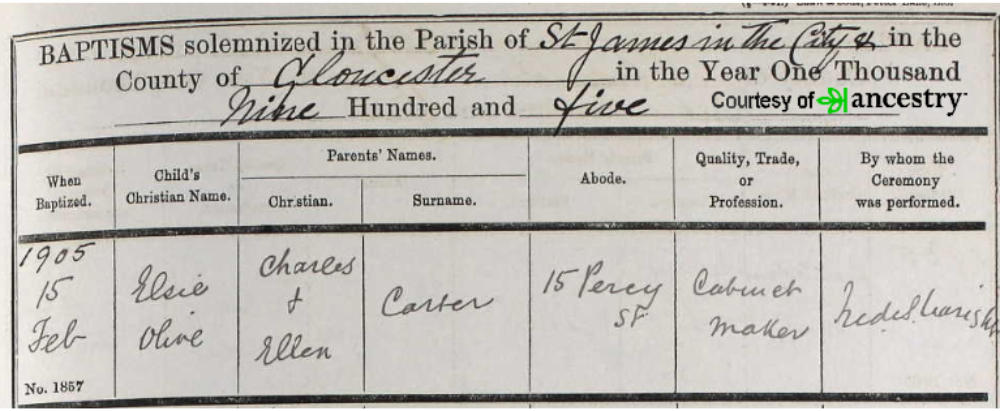 BAPTISMS solemnized in the Parish of St James in the City & in the
County of Gloucester in the Year One Thousand
Nine Hundred and five
Courtesy of ancestry
When Baptized.
Child's Christian Name.
Parents' Names.
Christian.
Surname.
Abode.
Quality, Trade, or Profession.
By whom the Ceremony was performed.
1905
15
Feb
Elsie
Olive
Charles
&
Ellen
Carter
15 Percy
St
Cabinet
maker
No. 1857